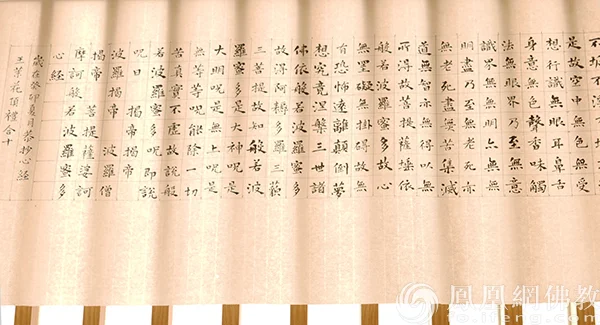 是故空中無色無受
想行識無眼耳鼻舌
身意無色聲香味觸
法無眼界乃至無意
識界無無明亦無無
明盡乃至無老死亦
無老死盡無苦集滅
道無智亦無得以無
所得故菩提薩埵依
般若波羅蜜多故心
無罣礙無掛礙故無
有恐怖遠離顛倒夢
想究竟涅槃三世諸
佛依般若波羅蜜多
故得阿耨多羅三藐
三菩提故知般若波
羅蜜多是大神呪是
大明呪是無上呪是
無等等呪能除一切
苦真實不虛故說般
若波羅蜜多呪即說
呪曰 揭帝 揭帝
波羅揭帝 波羅僧
揭帝 菩提薩婆訶
摩訶般若波羅蜜多
心經
歲在癸卯夏月恭抄心經
王葉花頂禮合十
鳳凰網佛教
fo.ifeng.com